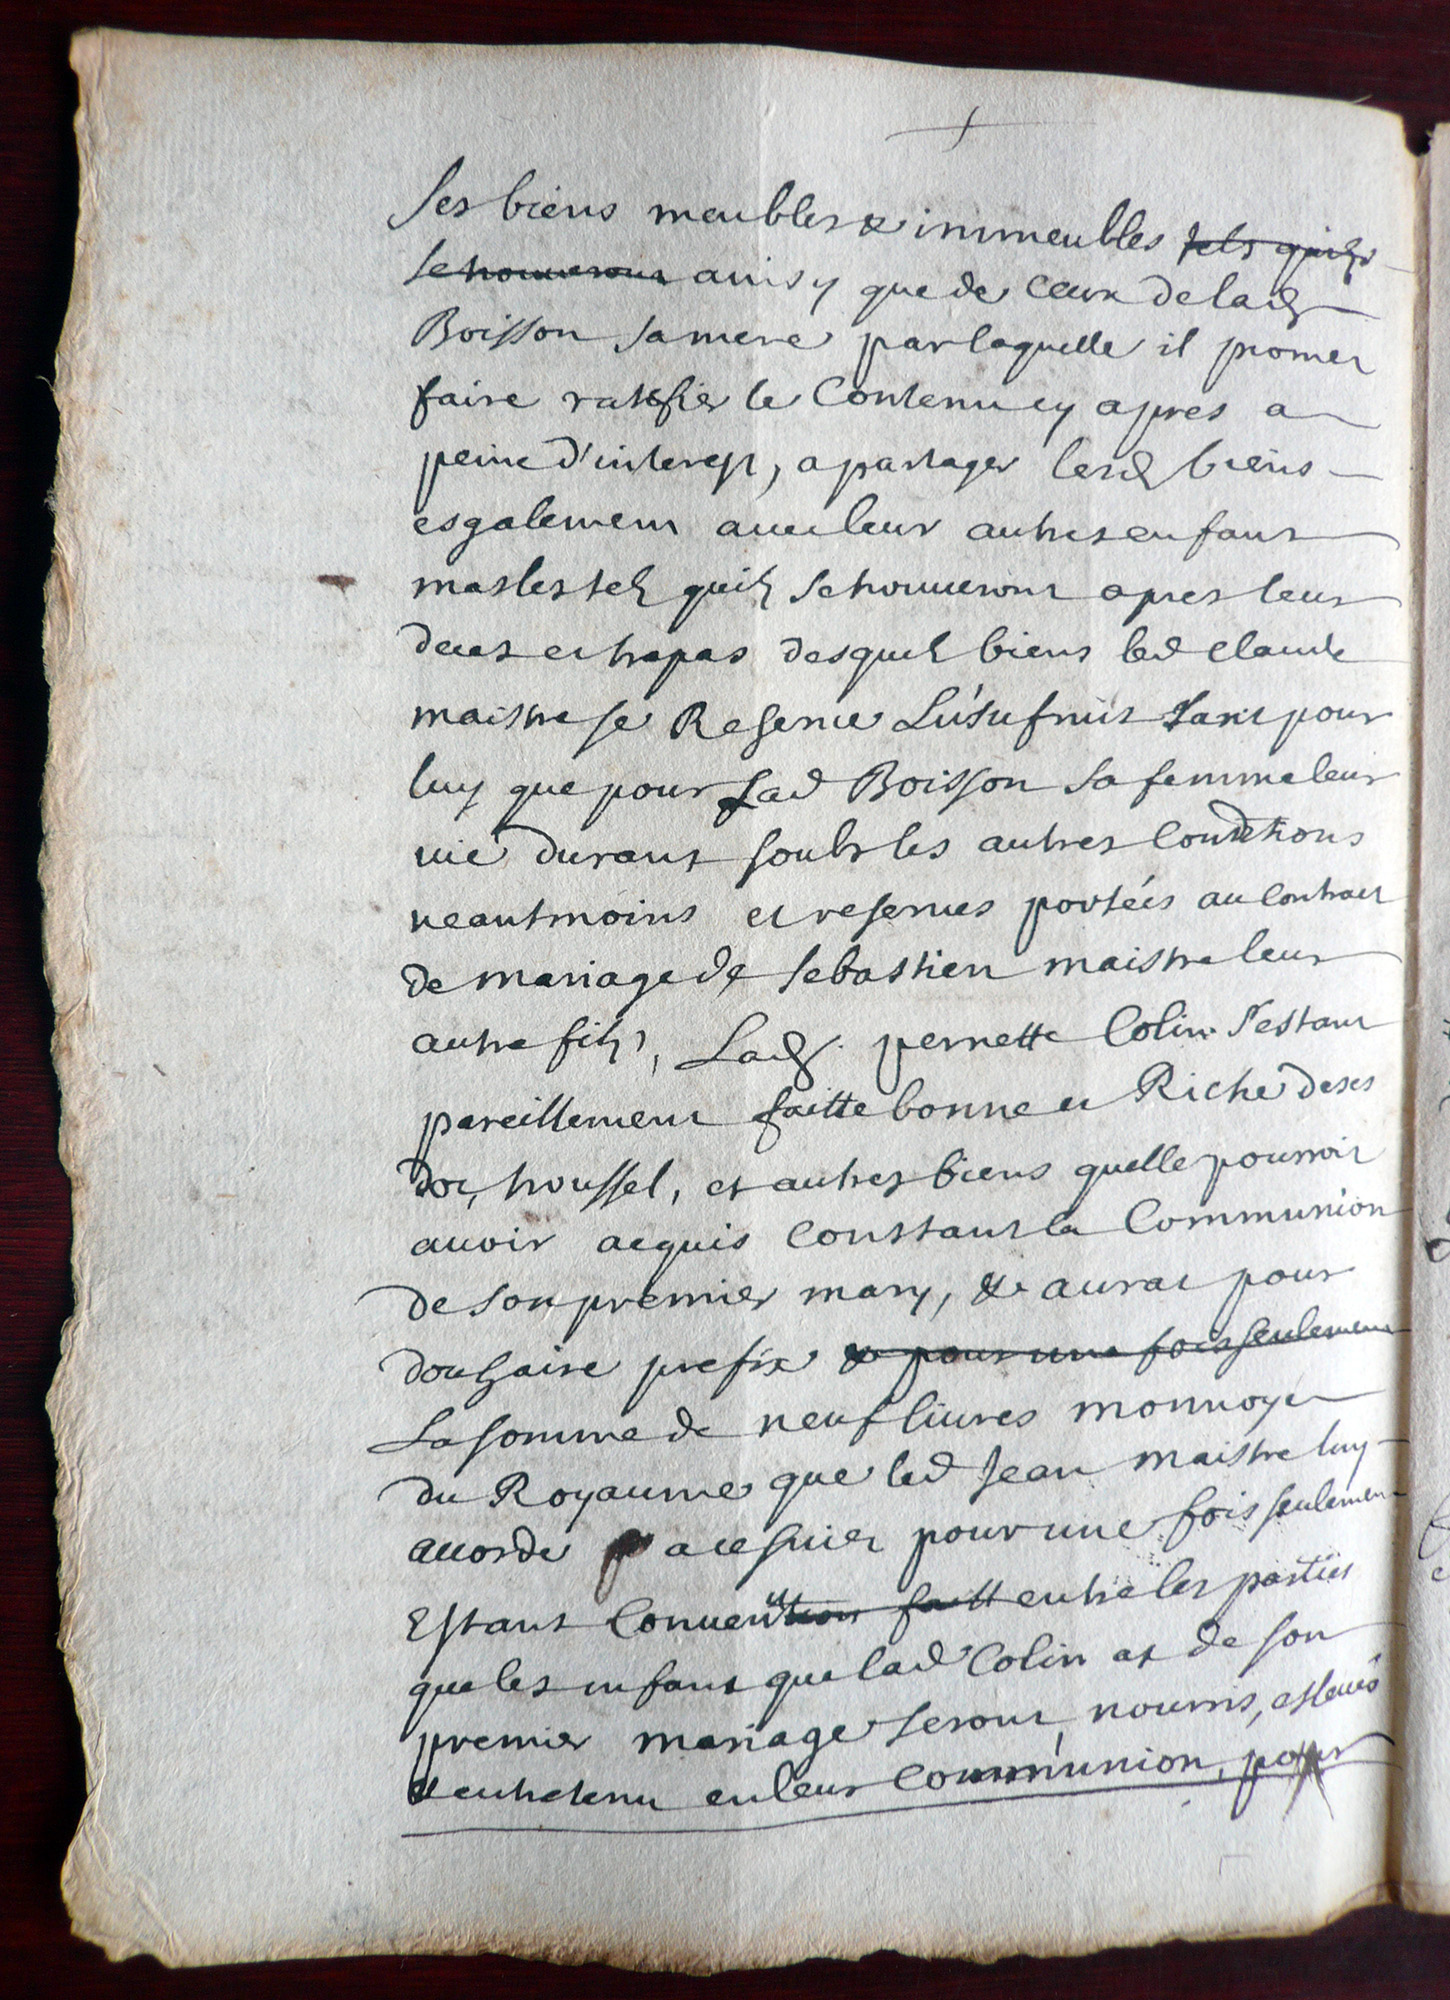 ses biens meubles & immeubles tels quilz
se trouueront aussy que de ceux de lad
Boisson sa mere par laquelle il promet
faire ratifier le Contenu cy apres a
peine d'interest, a partager lesd biens
esgalement auec leur autres enfans
masles telz quilz se trouueront apres leur
deces et trapas desquelz biens led Claude
maistre se Reserue L'usufruit tant pour
luy que pour Lad Boisson sa femme leur
vie durant soubs les autres Conditions
neantmoins et reserues portées au Contract
de mariage de sebastien maistre leur
autre filz, Lad. pernette Colin s'estant
pareillement faitte bonne et Riche de ses
dot, troussel, et autres biens quelle pourroit
auoir acquis Constant la Communion
de son premier mary, & aurat pour
douhaire prefix & pour une fois seulement
La somme de neuf liures monnoye
du Royaume que led Jean maistre luy
accorde a cest pour une fois seulement
Estant Conuention faitt entre les parties
que les enfant que lad Colin at de son
premier mariage seront nourris, esleués
et entretenu en leur Communion, pour